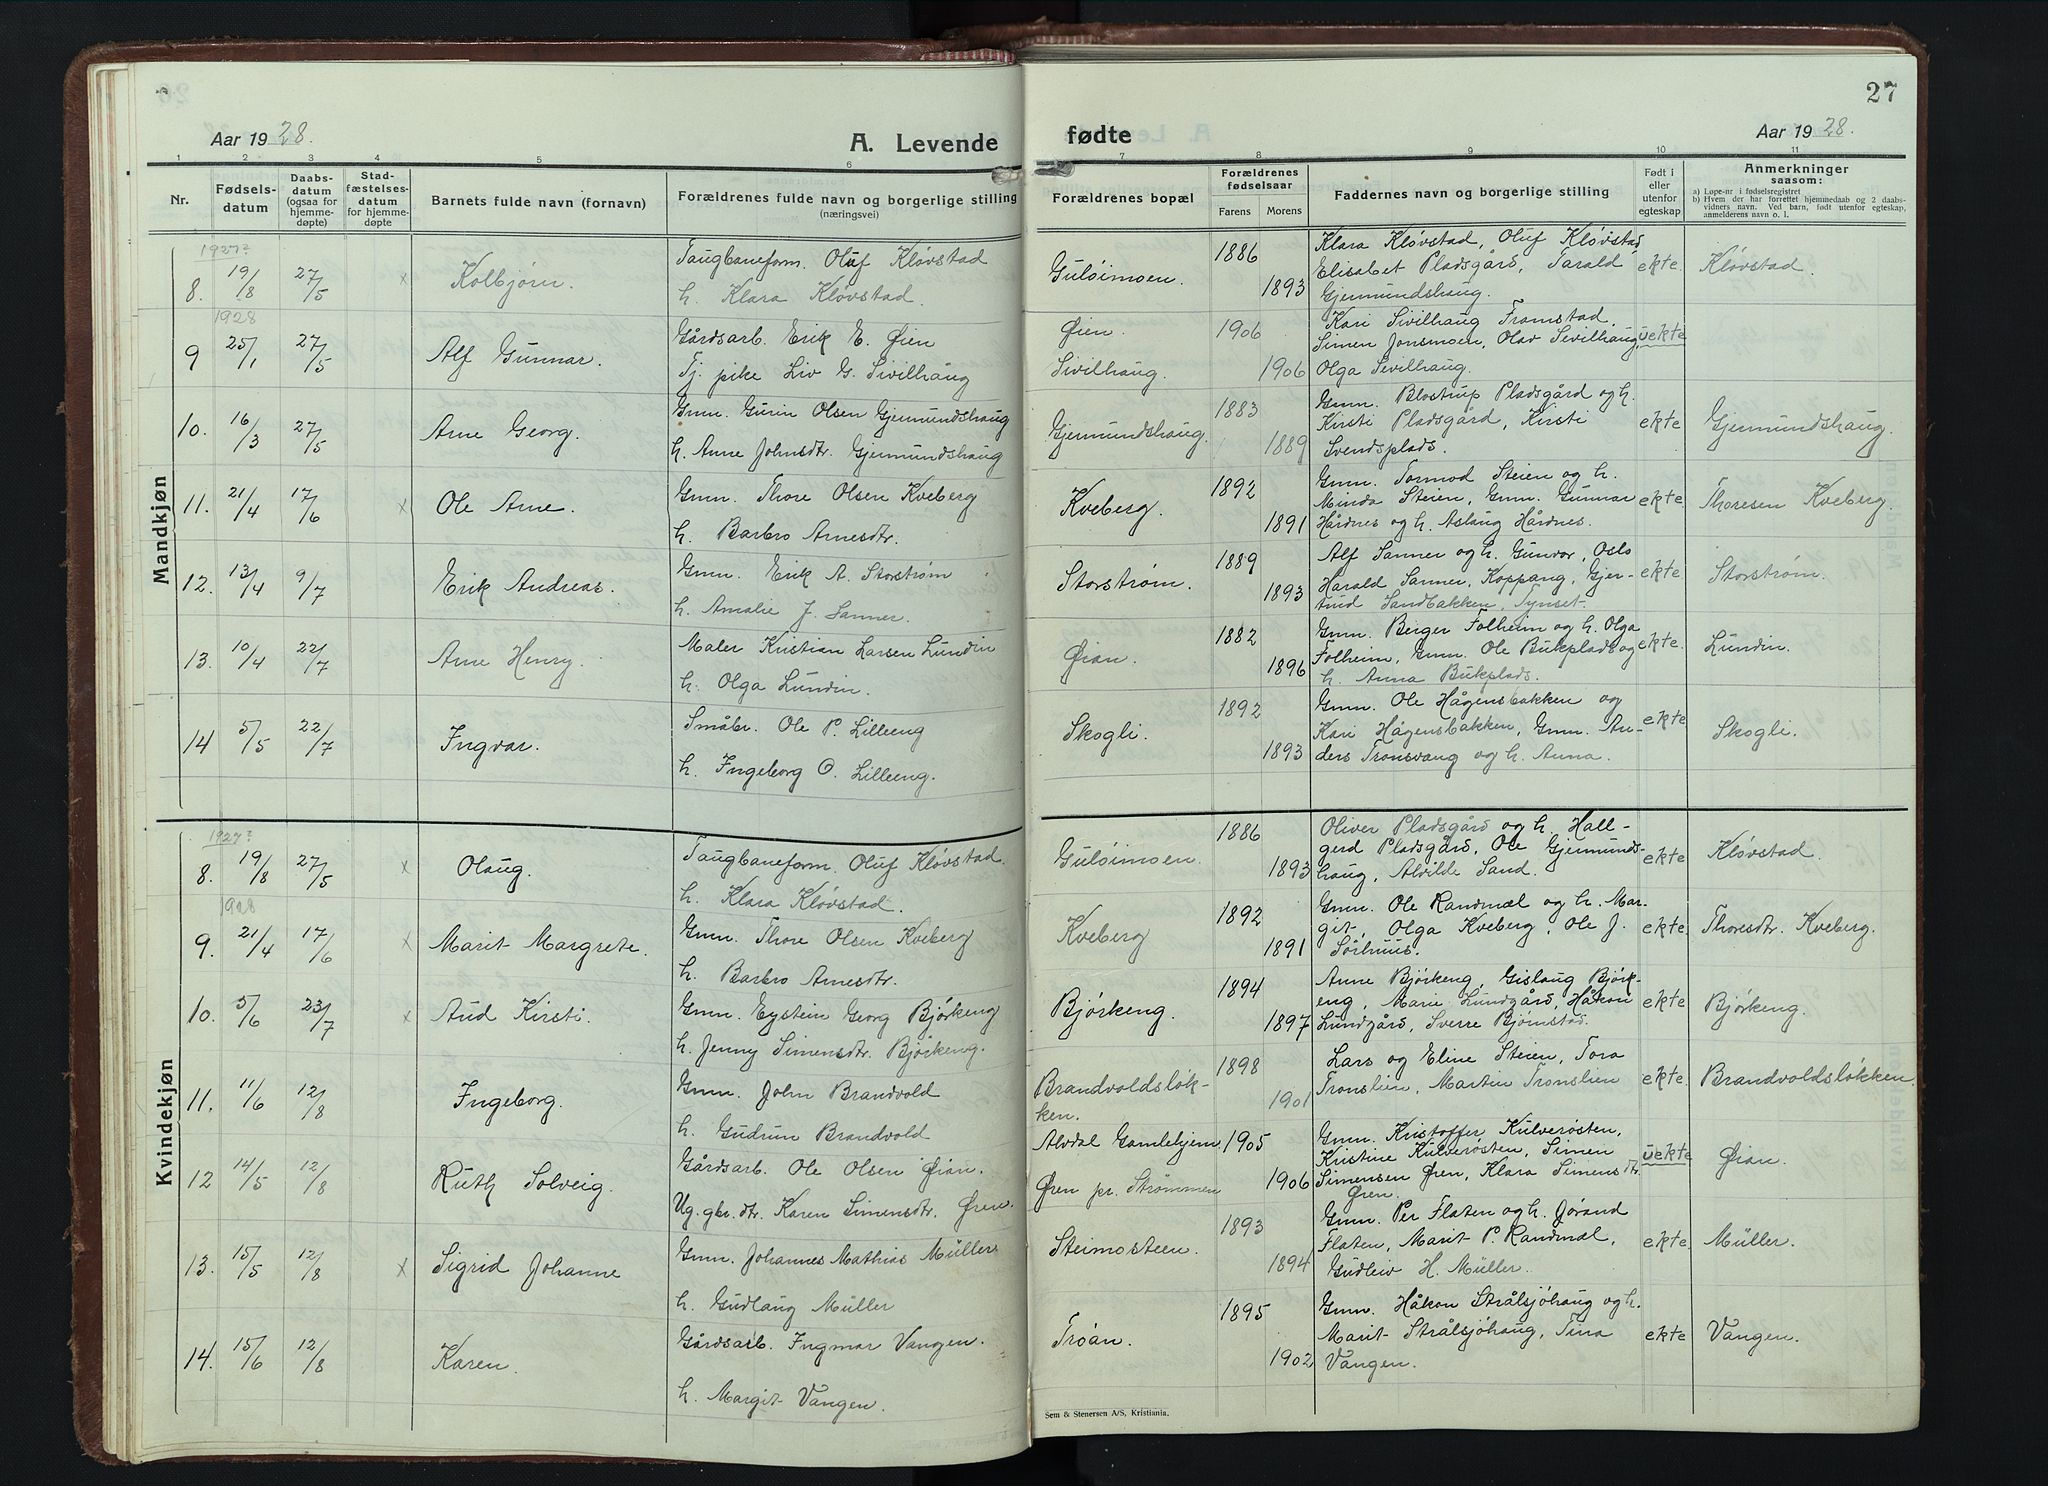 27
Aar 1928.
A. Levende fødte
Aar 1928.
1 2 3 4 5 6 7 8 9 10 11
Nr.
Fødsels-
datum
Daabs-
datum
(ogsaa for
hjemme-
døpte)
Stad-
fæstelses-
datum
for hjemme-
døpte
Barnets fulde navn (fornavn)
Forældrenes fulde navn og borgerlige stilling
(næringsvei)
Forældrenes bopæl
Forældrenes
fødselsaar
Farens Morens
Faddernes navn og borgerlige stilling
Født i
eller
utenfor
egteskap
Anmerkninger
saasom:
a) Løpe-nr i fødselsregistret
b) Hvem der har forrettet hjemmedaab og 2 daabs-
vidners navn. Ved barn, født utenfor egteskap,
anmelderens navn o. l.
Mandkjøn
1927?
8. 19/8 27/5 x Kolbjørn. Taugbaneform. Oluf Kløvstad Guløimoen. 1886 Klara Kløvstad, Oluf Kløvstad ekte. Kløvstad.
Elisabet Pladsgård, Tarald
h. Klara Kløvstad. 1893 Gjermundshaug.
1928
9 25/1 27/5 Alf Gunnar. Gårdsarb. Erik E. Øien Øien. 1906 Kari Sivilhaug Framstad, uekte
Simen Jonsmoen, Olav Sivilhaug,
Tj. pike Liv G. Sivilhaug Sivilhaug. 1906 Olga Sivilhaug.
10. 16/3 27/5 Arne Georg. Gmn. Gurin Olsen Gjermundshaug Gjermundshaug. 1883 Gmn. Blostrup Pladsgård og h. ekte Gjermundshaug.
Kirsti Pladsgård, Kirsti
h. Anne Johnsdtr. Gjermundshaug 1889 Svendsplads.
11. 21/4 17/6 x Ole Arne. Gmn. Thore Olsen Kveberg Kveberg. 1892 Gmn. Tormod Steien og h. ekte. Thoresen Kveberg.
Minda Steien, Gmn. Gunnar
h. Barbro Arnesdtr. 1891 Hårdnes og h. Aslaug Hårdnes.
12. 13/4 9/7 Erik Andreas. Gmn. Erik A. Storstrøm Storstrøm. 1889 Alf Sanner og h. Gunvor, Oslo ekte. Storstrøm.
Harald Sanner, Koppang, Gjer-
h. Amalie J. Sanner. 1893 trud Sandbakken, Tynset.
13. 10/4 22/7 Arne Henry. Maler Kristian Larsen Lundin Øian. 1882 Gmn. Berger Folheim og h. Olga ekte. Lundin.
Folheim, Gmn. Ole Bukplads og
h. Olga Lundin. 1896 h. Anna Bukplads.
14 5/5 22/7 Ingvar. Småbr. Ole P. Lilleeng Skogli. 1892 Gmn. Ole Hågensbakken og ekte Skogli.
Kari Hågensbakken, Gmn. An-
h. Ingeborg O. Lilleeng. 1893 ders Tronsvang og h. Anna.
Kvindekjøn
1927?
8. 19/8 27/5 x Olaug. Taugbaneform. Oluf Kløvstad. Guløimoen. 1886 Oliver Pladsgård og h. Hall- ekte Kløvstad.
gerd Pladsgård, Ole Gjermunds-
h. Klara Kløvstad. 1893 haug, Alvilde Sand.
1928
9. 21/4 17/6 x Marit Margrete. Gmn. Thore Olsen Kveberg Kveberg 1892 Gmn. Ole Randmæl og h. Mar- ekte. Thoresdtr. Kveberg.
git, Olga Kveberg, Ole J.
h. Barbro Arnesdtr. 1891 Sørhuus.
10. 5/6 23/7 x Aud Kirsti. Gmn. Eystein Georg Bjørkeng Bjørkeng. 1894 Anne Bjørkeng, Gislaug Bjørk- ekte Bjørkeng.
eng, Marie Lundgård, Håkon
h. Jenny Simensdtr. Bjørkeng. 1897 Lundgård, Sverre Bjørnstad.
11. 11/6 12/8 Ingeborg. Gmn. John Brandvold Brandvoldsløk- 1898 Lars og Eline Steien, Tora ekte. Brandvoldsløkken.
ken. Tronslien, Martin Tronslien
h. Gudrun Brandvold 1901
12 14/5 12/8 Ruth Solveig. Gårdsarb. Ole Olsen Øian. Alvdal Gamlehjem 1905 Gmn. Kristoffer Kulverøsten, uekte Øian.
Kristine Kulverøsten, Simen
Ug. gbr. dtr. Karen Simensdtr. Øren. Øren pr. Strømmen 1906 Simensen Øren, Klara Simensdtr.
Øren.
13. 15/5 12/8 x Sigrid Johanne Gmn. Johannes Mathias Müller Steimosteen. 1893 Gmn. Per Flaten og h. Jørand ekte. Müller.
Flaten, Marit P. Randmæl,
h. Gudlaug Müller 1894 Gudleiv H. Müller.
14. 15/6 12/8 Karen. Gårdsarb. Ingmar Vangen. Trøan. 1895 Gmn. Håkon Strålsjøhaug og h. ekte Vangen.
Marit Strålsjøhaug, Tina
h. Margit Vangen. 1902 Vangen.
Sem & Stenersen A/S, Kristiania.